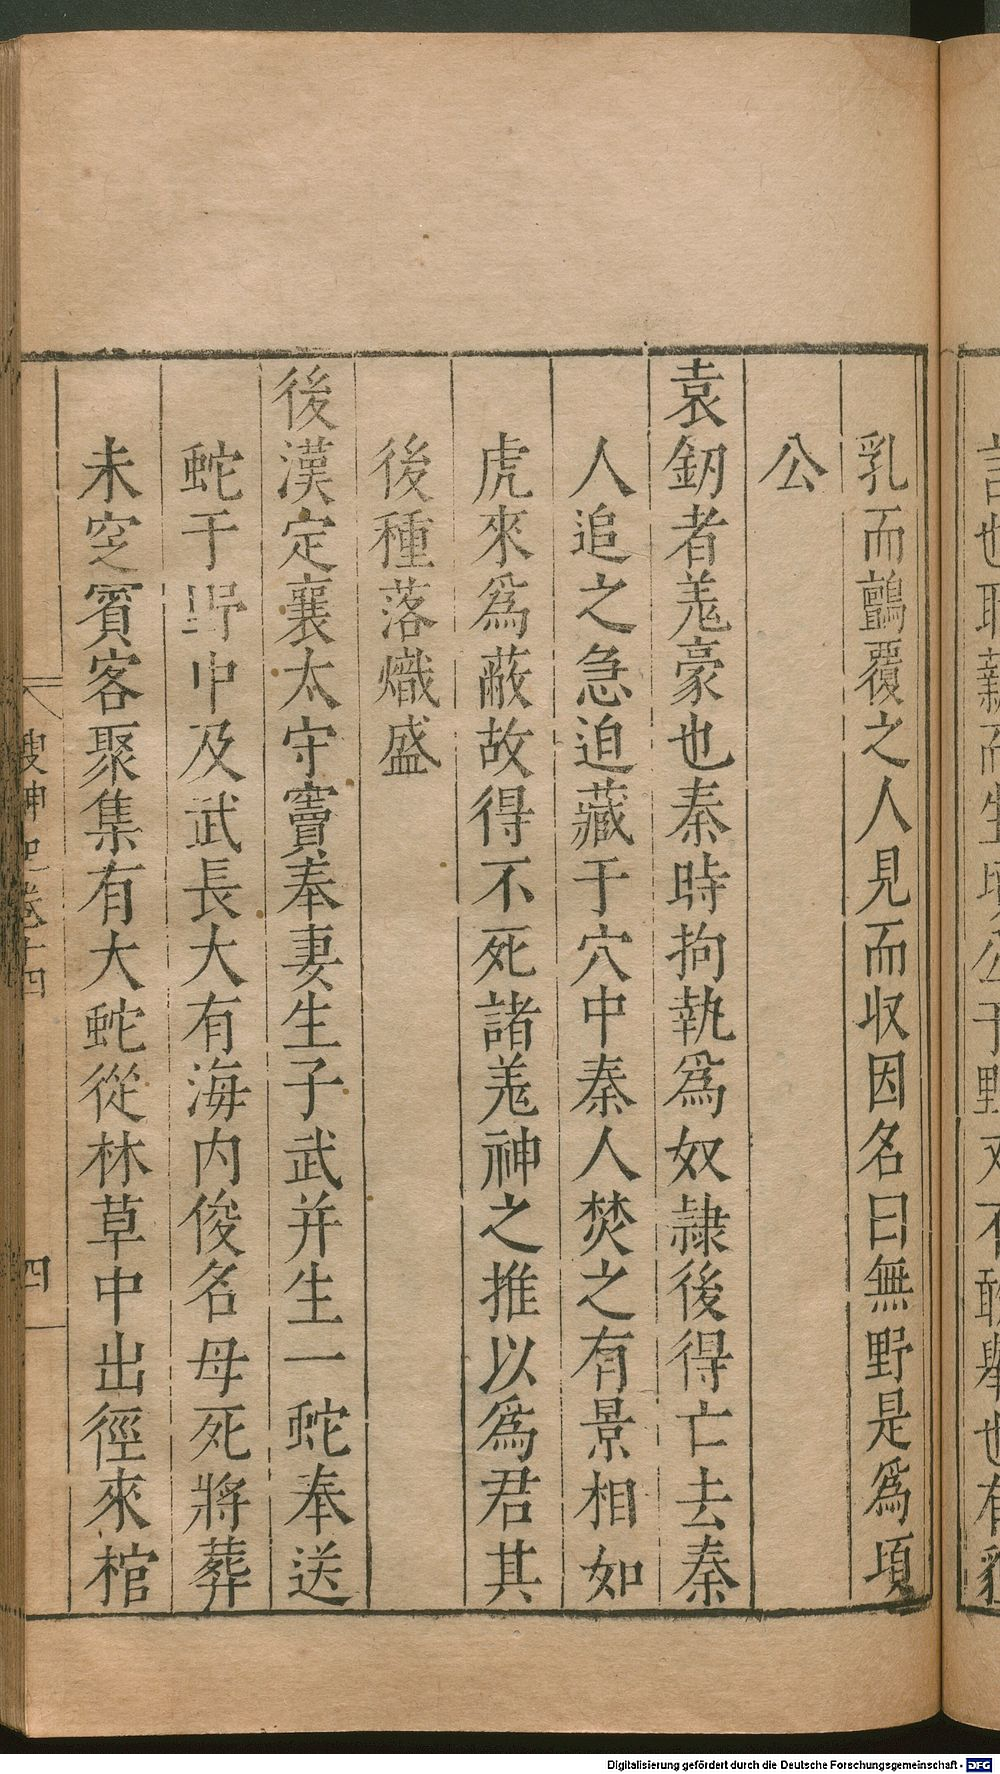 乳而鸇覆之人見而收因名曰無野是爲項
公
袁釰者羗豪也秦時拘執爲奴隷後得亡去秦
人追之急迫藏于穴中秦人焚之有景相如
虎來爲蔽故得不死諸羗神之推以爲君其
後種落熾盛
後漢定襄太守竇奉妻生子武并生一蛇奉送
蛇于野中及武長大有海内俊名母死將葬
未窆賓客聚集有大蛇從林草中出徑來棺
搜神記卷十四
四
Digitalisierung gefördert durch die Deutsche Forschungsgemeinschaft - DFG